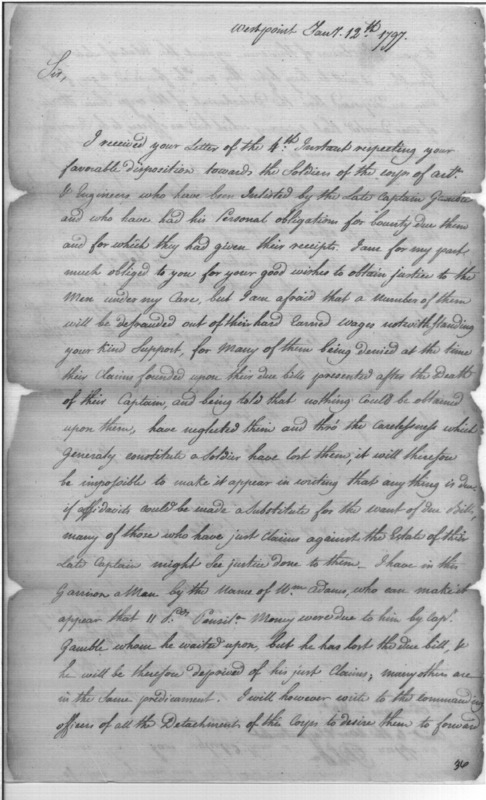 Westpoint Jany. 12th 1797.
Sir,
I received your Letter of the 4th Instant respecting your
favorable disposition towards the Soldiers of the corps of arty.
& Engineers who have been Inlisted by the Late Captain Gamble
and who have had his Personal obligations for bounty due them
and for which they had given their receipts. I am for my part
much obliged to you for your good wishes to obtain justice to the
Men under my Care, but I am afraid that a number of them
will be defrauded out of their hard Earned wages notwithstanding
your Kind Support, for Many of them being denied at the time
their Claims founded upon their due bills presented after the Death
of their Captain, and being told that nothing Could be obtained
upon them, have neglected them and thro the Carelessness which
generaly constitute a Soldier have lost them; it will therefore
be impossible to make it appear in writing that anything is due;
if affidavids could be made a Substitute for the want of Due Bills,
many of those who have just Claims against the Estate of their
Late Captain might See justice done to them. I have in this
Garrison a Man by the Name of Wm. Adams, who can make it
appear that 11 Money were due to him by Capt.
Gamble whom he waited upon, but he has lost the due bill, &
he will be therefore deprived of his just Claims; many others are
in the Same predicament. I will however write to the commanding
officers of all the Detachments of the Corps to desire them to forward